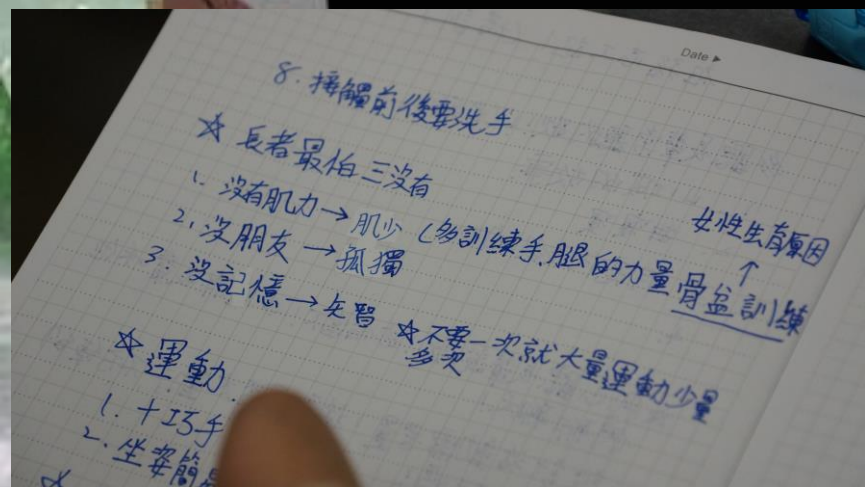 Date ▶
8. 接觸前後要洗手
☆ 長者最怕三沒有
1. 沒有肌力→肌少(多訓練手.腿的力量骨盆訓練
↑
女性生育原因
2. 沒朋友→孤獨
3. 沒記憶→失智
☆不要一次就大量運動少量
多次
☆運動.
1. 十巧手
2. 坐姿簡